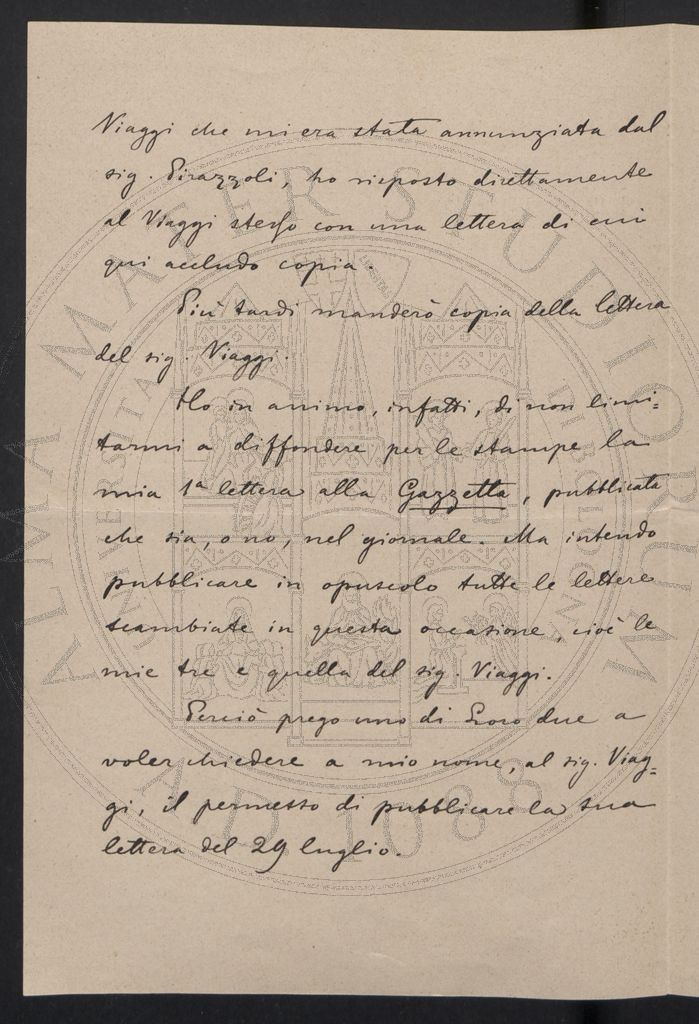 Viaggi che mi era stata annunziata dal
sig. Pirazzoli, ho risposto direttamente
al Viaggi stesso con una lettera di cui
qui accludo copia.
Più tardi manderò copia della lettera
del sig. Viaggi.
Ho in animo, infatti, di non limi=
tarmi a diffondere per le stampe la
mia 1ª lettera alla Gazzetta, pubblicata
che sia, o no, nel giornale. Ma intendo
pubblicare in opuscolo tutte le lettere
scambiate in questa occasione, cioè le
mie tre e quella del sig. Viaggi.
Perciò prego uno di Loro due a
voler chiedere a mio nome, al sig. Viag=
gi, il permesso di pubblicare la sua
lettera del 29 luglio.
ALMA MATER STUDIORUM
A.D. 1088